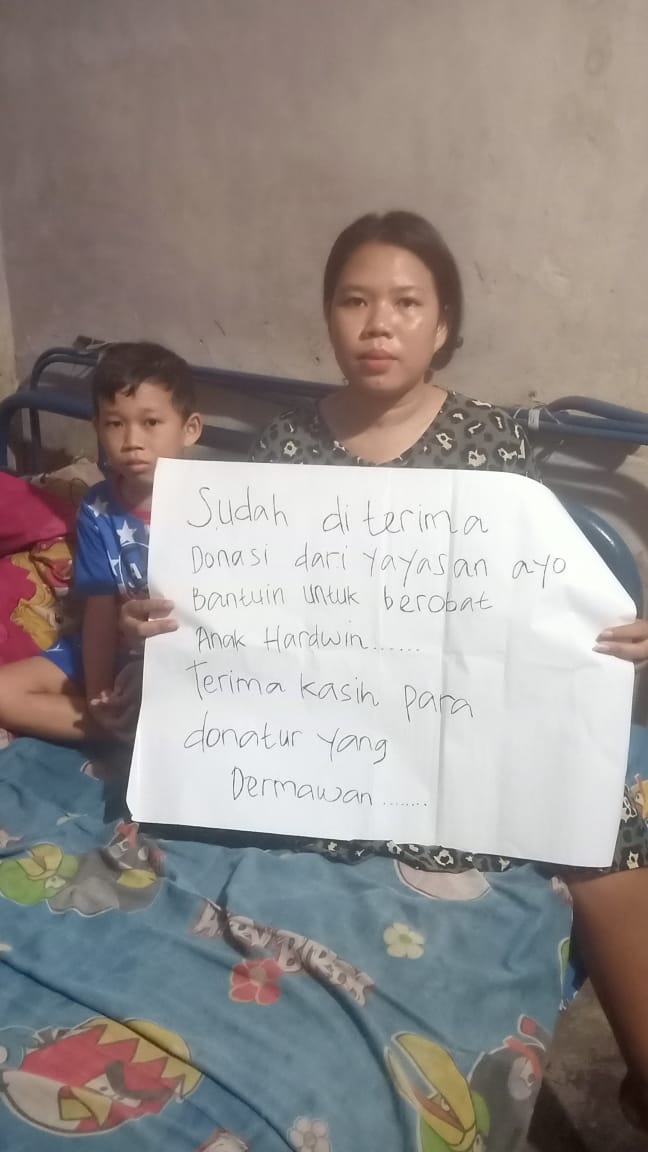 Sudah di terima
Donasi dari yayasan ayo
Bantuin untuk berobat
Anak Hardwin......
Terima kasih para
donatur yang
Dermawan........
ANGRY BIRDS